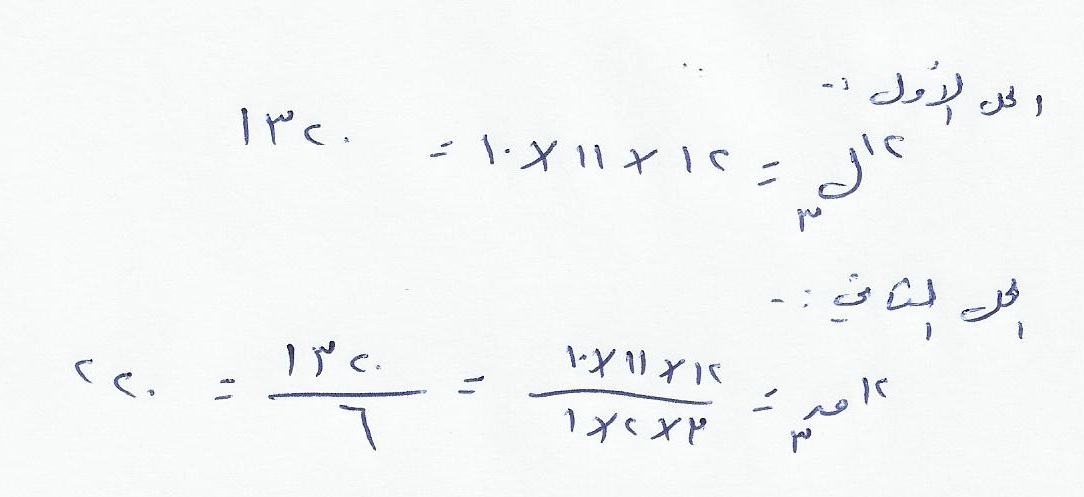 الحل الأول :-
١٢ل٣ = ١٢ × ١١ × ١٠ = ١٣٢٠
الحل الثاني :-
١٢ق٣ = ١٢×١١×١٠ / ٣×٢×١ = ١٣٢٠ / ٦ = ٢٢٠